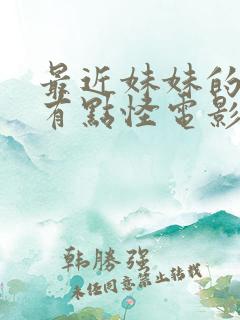 最近妹妹的
有點怪電影
韩勝强
未任同意禁止转载